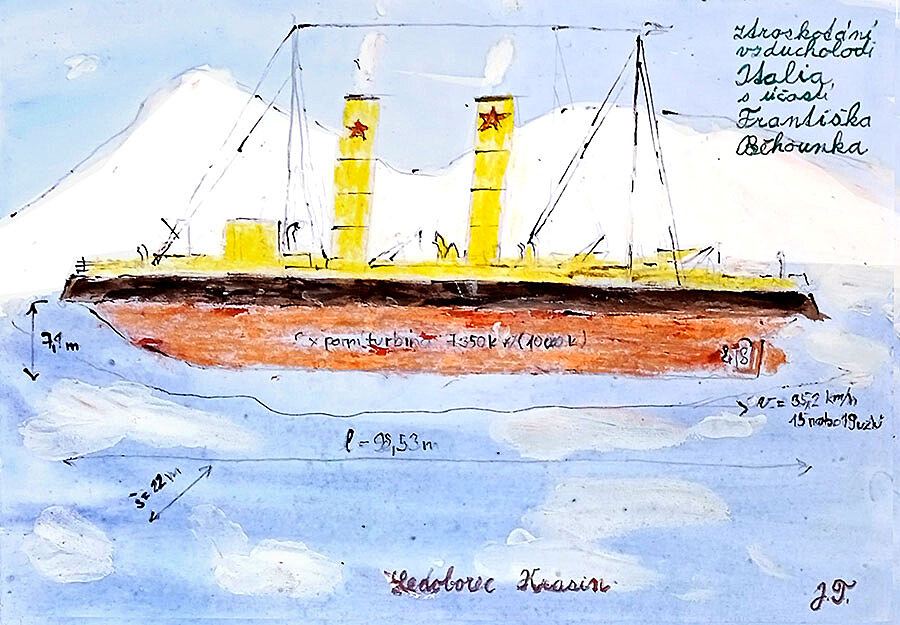 Ztroskotání
vzducholodi
Italia,
s účastí
Františka
Běhounka
7,9 m
x parní turbina 7350 k
v = 35,2 km/h
15 nebo 19 uzlů
l = 98,53 m
š = 22 m
Ledoborec Krasin
J.T.